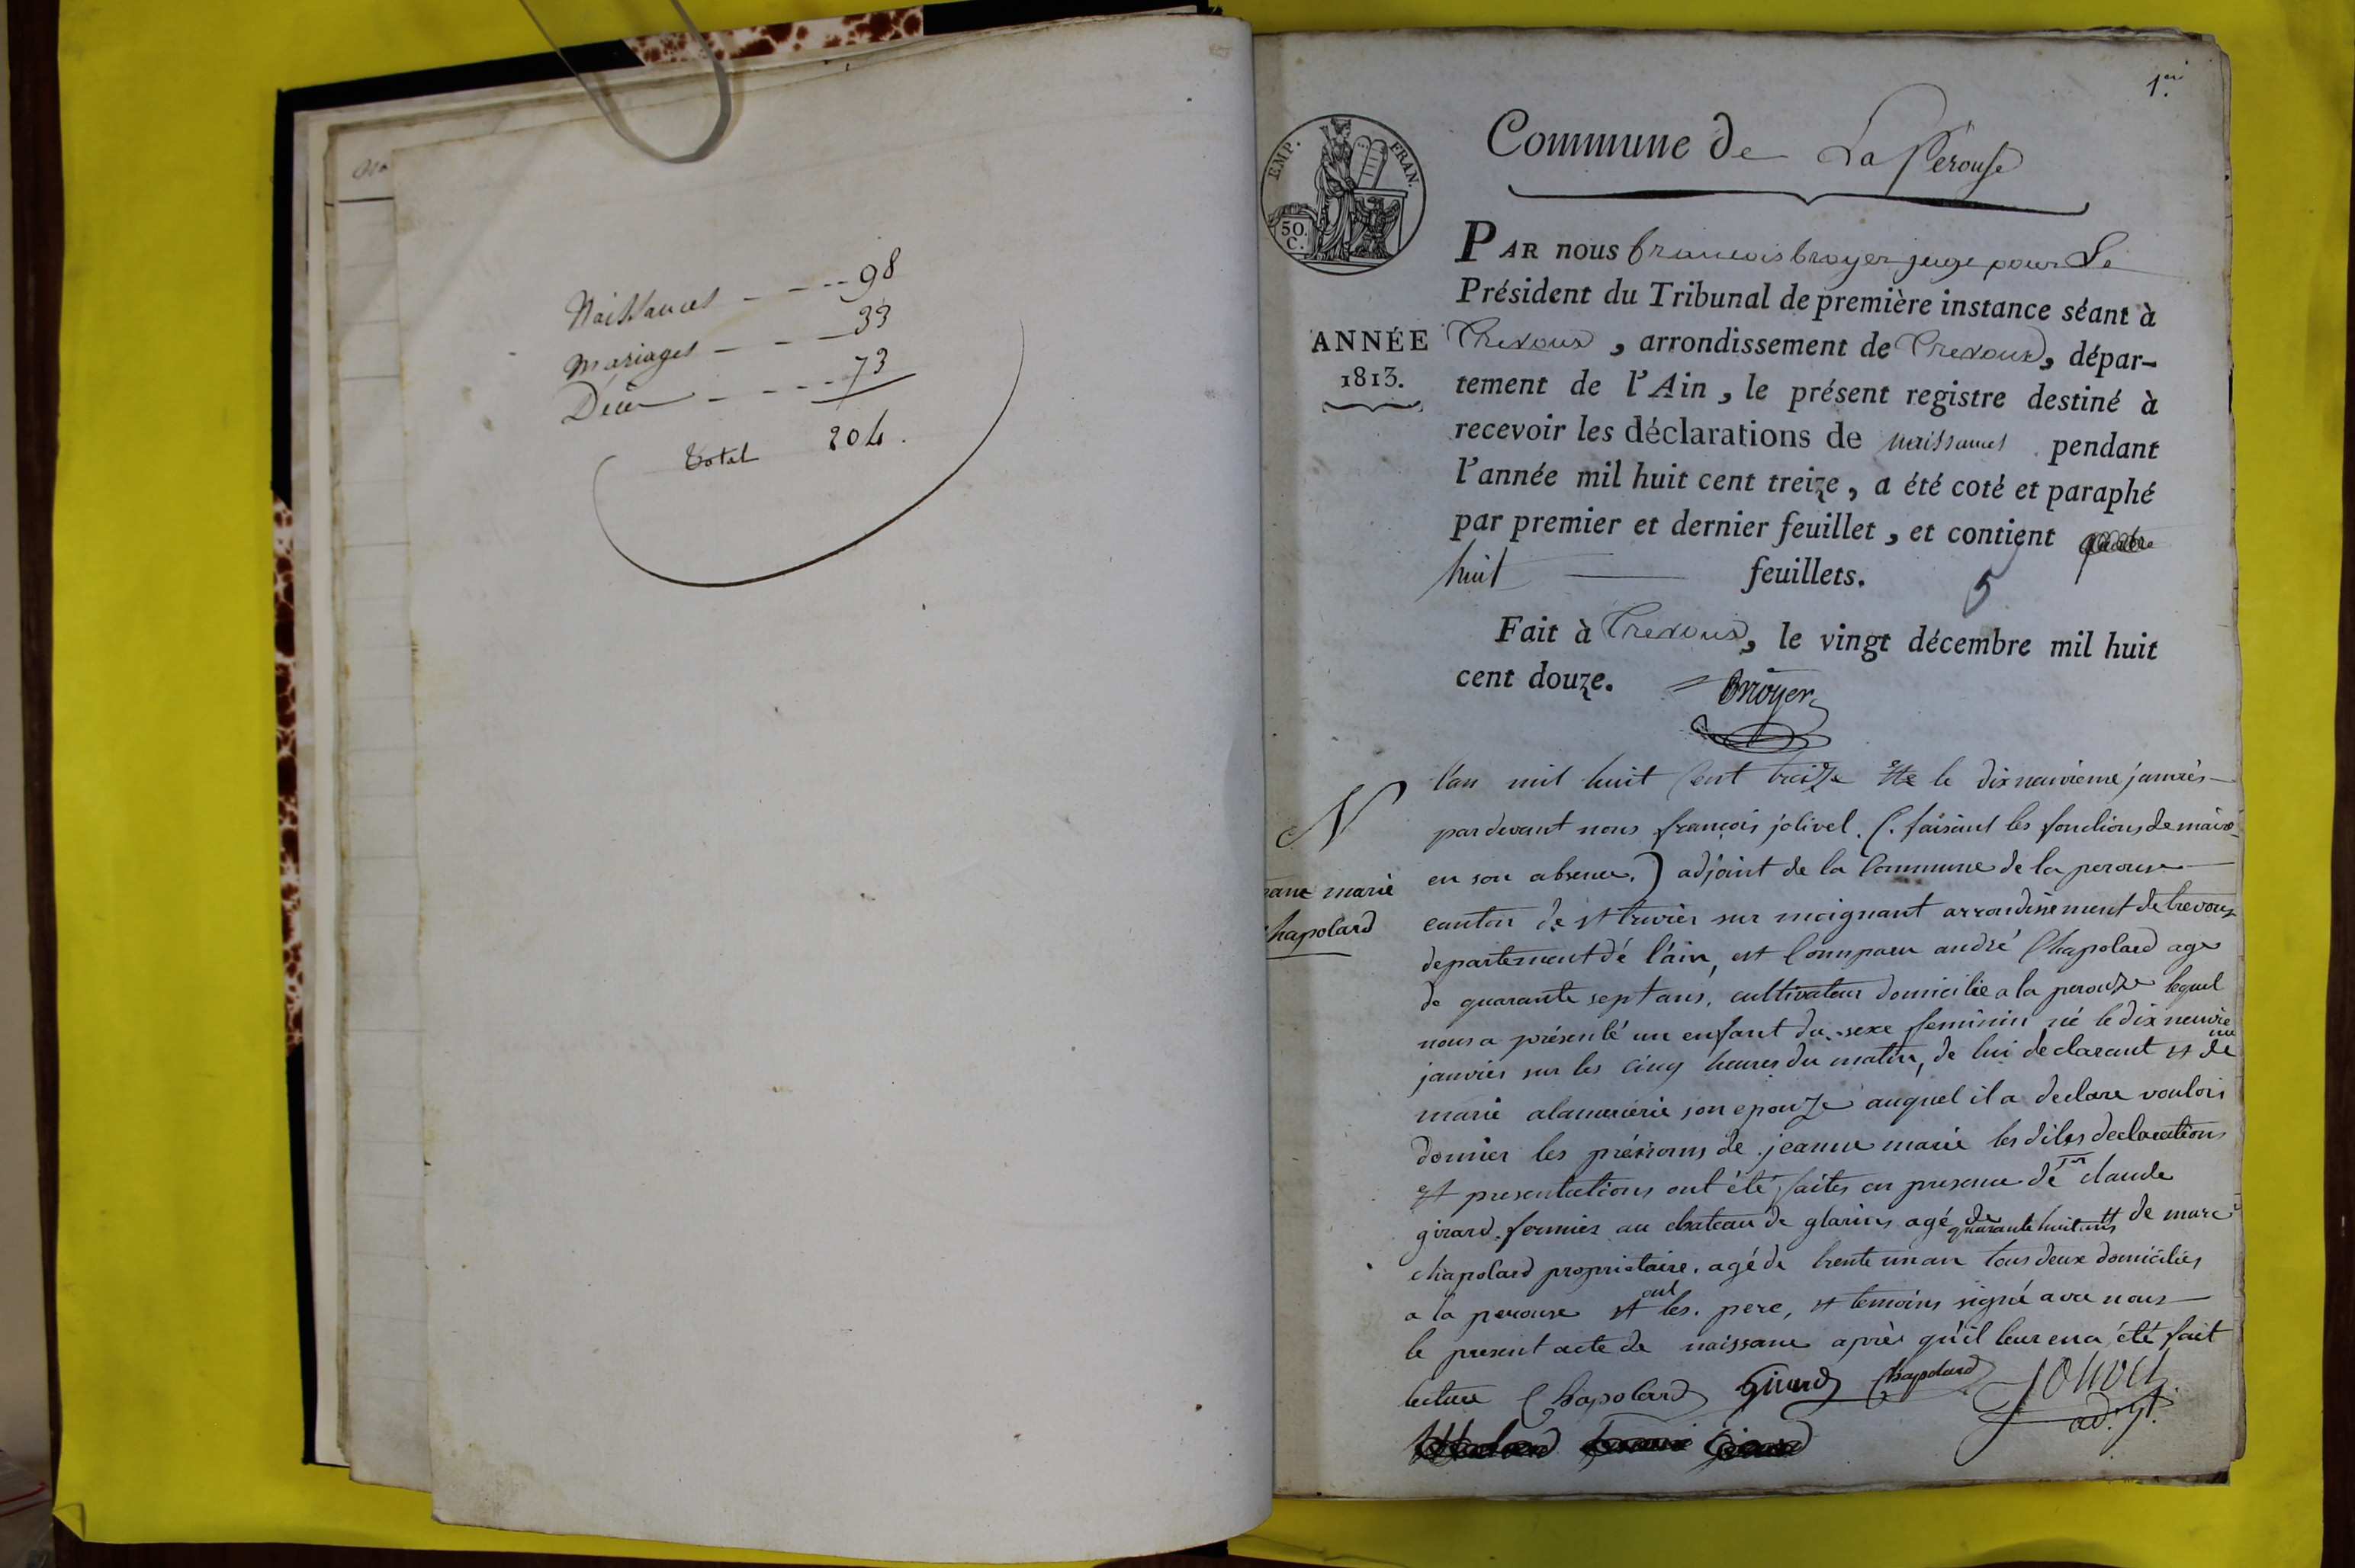 Naissances - - - - 98
Mariages - - - 33
Décès - - - - 73
Total 204.
1er
EMP. FRAN.
50. C.
Commune de La Pérouse
PAR nous francois broyer juge pour Le
Président du Tribunal de première instance séant à
ANNÉE
1813.
Trevoux, arrondissement de Trevoux, dépar-
tement de l'Ain, le présent registre destiné à
recevoir les déclarations de naissances pendant
l'année mil huit cent treize, a été coté et paraphé
par premier et dernier feuillet, et contient
huit feuillets.
5
Fait à Trevoux, le vingt décembre mil huit
cent douze. Broyer
N
eane marie
hapolard
l'an mil huit cent treize le dix neuvieme janvier
pardevant nous françois jolivet. (. faisant les fonctions de maire
en son absence.) adjoint de la Commune de la perouse
canton de st trivier sur moignant arrondissement de trevoux
departement dé l'ain, est Comparu andré Chapolard age
de quarante sept ans, cultivateur domicilié a la perouze lequel
nous a présenté un enfant du sexe feminin né le dix neuvieme
janvier sur les cinq heures du matin, de lui declarant et de
marie son epouze auquel il a declare vouloir
donner les prénoms de jeanne marie les dites declarations
et presentations ont été faites en presence de claude
girard fermier au chateau de glarins agé de quarante huit ans et de marc
chapolard proprietaire. agé de trente un an tous deux domiciliés
a la perouse et ont les. pere, et temoins signé avec nous
le present acte de naissance après qu'il leur en a été fait
lecture Chapolard Girard Chapolard Jolivet
adjt.